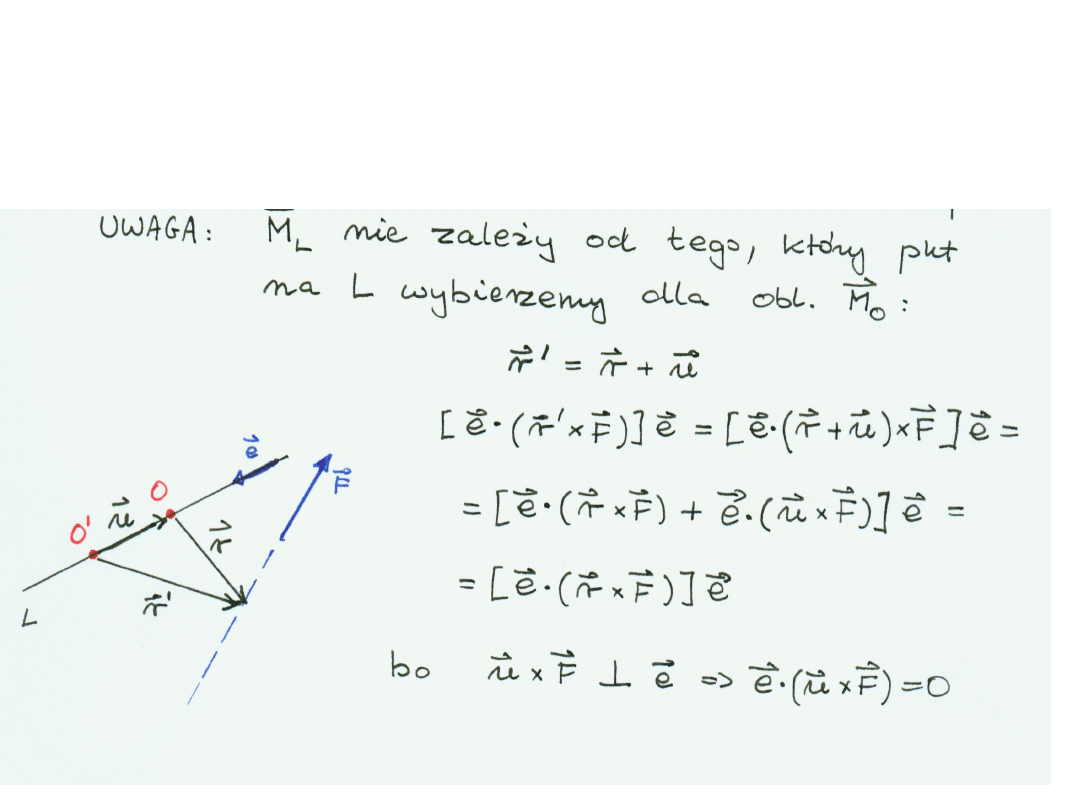 UWAGA: M⃗_L nie zależy od tego, który pkt
na L wybierzemy dla obl. M⃗_O :
r⃗' = r⃗ + u⃗
[e⃗·(r⃗'×F⃗)]e⃗ = [e⃗·(r⃗+u⃗)×F⃗]e⃗ =
= [e⃗·(r⃗×F⃗) + e⃗·(u⃗×F⃗)]e⃗ =
= [e⃗·(r⃗×F⃗)]e⃗
bo u⃗×F⃗ ⊥ e⃗ => e⃗·(u⃗×F⃗)=0
e⃗
F⃗
O
u⃗
O'
r⃗
r⃗'
L